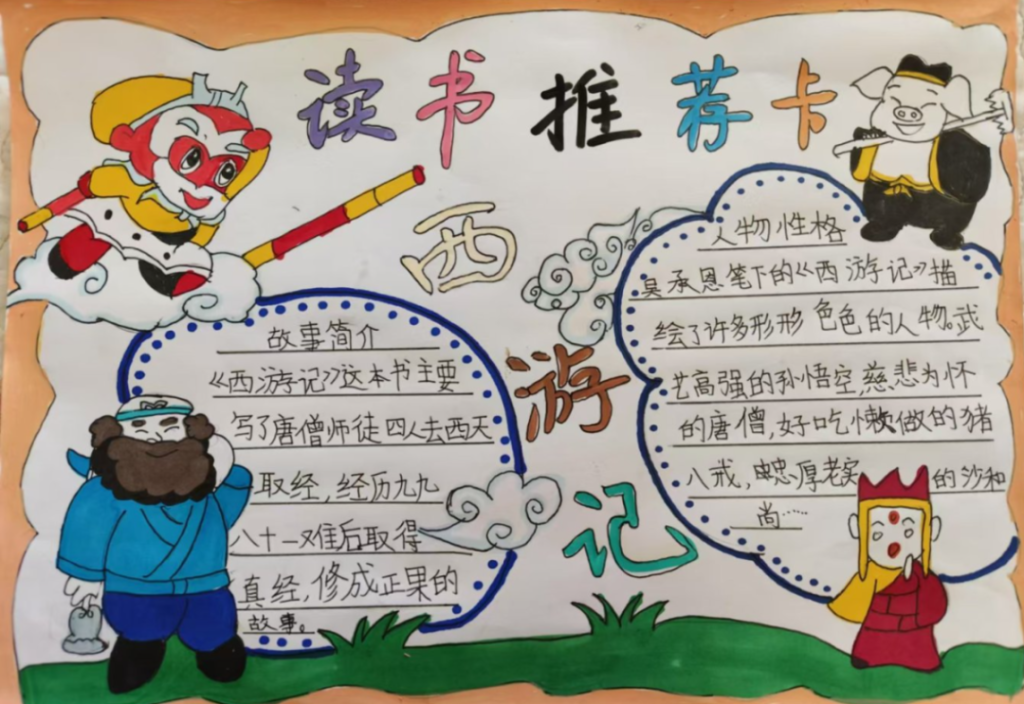 读书推荐卡
西游记
故事简介
《西游记》这本书主要
写了唐僧师徒四人去西天
取经,经历九九
八十一难后取得
真经,修成正果的
故事。
人物性格
吴承恩笔下的《西游记》描
绘了许多形形色色的人物。武
艺高强的孙悟空,慈悲为怀
的唐僧,好吃懒做的猪
八戒,忠厚老实的沙和
尚……